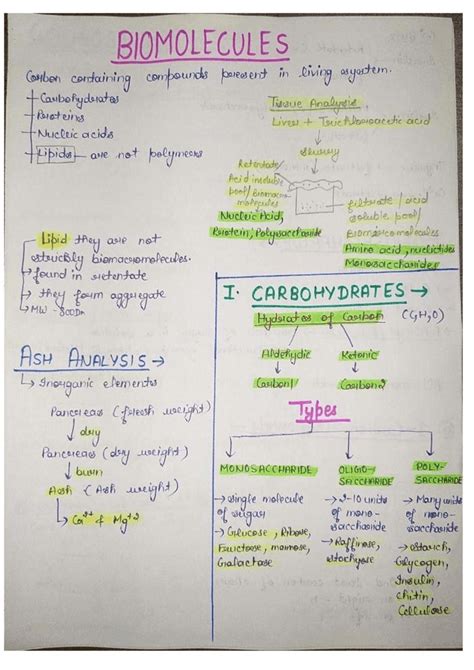 BIOMOLECULES
Carbon containing compounds present in living system.
Carbohydrates
Proteins
Nucleic acids
Lipids - are not polymers
Tissue Analysis
Liver + Trichloroacetic acid
slurry
Retentate/
Acid insoluble
pool/Biomacro-
molecules
Nucleic Acid,
Protein, Polysaccharide
filtrate / acid
soluble pool/
Biomicromolecules
Amino acid, nucleotides
Monosaccharides
Lipid they are not
strickly biomacromolecules.
→ found in retentate
→ they form aggregate
→ MW - 800Da
ASH ANALYSIS →
Inorganic elements
Pancreas (fresh weight)
↓ dry
Pancreas (dry weight)
↓ burn
Ash (Ash weight)
Ca²⁺ & Mg⁺²
I. CARBOHYDRATES →
Hydrates of Carbon (C,H,O)
Aldehydic Ketonic
Carbon 1 Carbon 2
Types
MONOSACCHARIDE
→ single molecule
of sugar
→ Glucose, Ribose,
Fructose, mannose,
Galactose
OLIGO-
SACCHARIDE
→ 2-10 units
of mono-
saccharide
→ Raffinose,
stachyose
POLY-
SACCHARIDE
→ Many units
of mono-
saccharide
→ starch,
Glycogen,
Insulin,
chitin,
Cellulose